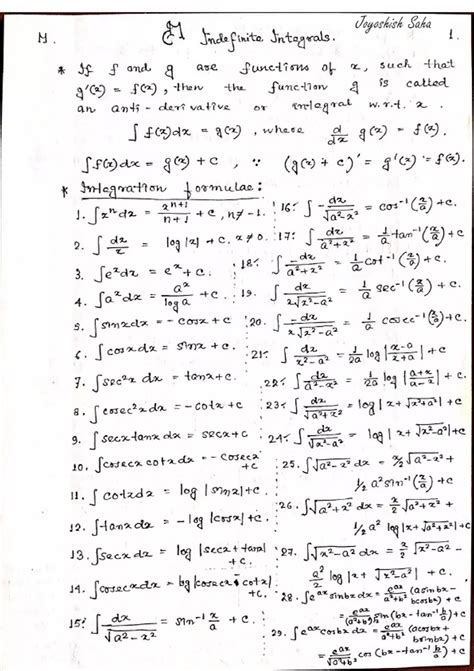 Joyoshish Saha
M. Indefinite Integrals. 1.
* If f and g are functions of x, such that
g'(x) = f(x), then the function g is called
an anti-derivative or integral w.r.t. x.
∫f(x)dx = g(x), where d/dx g(x) = f(x).
∫f(x)dx = g(x) + c, ∵ (g(x) + c)' = g'(x) = f(x).
* Integration formulae:
1. ∫x^n dx = x^(n+1)/(n+1) + c, n ≠ -1.
2. ∫dx/x = log|x| + c. x ≠ 0.
3. ∫e^x dx = e^x + c.
4. ∫a^x dx = a^x/log a + c.
5. ∫sinx dx = -cosx + c
6. ∫cosx dx = sinx + c.
7. ∫sec²x dx = tanx + c.
8. ∫cosec²x dx = -cotx + c
9. ∫secx tanx dx = secx + c
10. ∫cosecx cotx dx = -cosecx + c
11. ∫cotx dx = log|sinx| + c.
12. ∫tanx dx = -log|cosx| + c.
13. ∫secx dx = log|secx + tanx| + c.
14. ∫cosecx dx = log|cosecx - cotx| + c
15. ∫dx/√(a²-x²) = sin⁻¹ x/a + c.
16. ∫-dx/√(a²-x²) = cos⁻¹(x/a) + c.
17. ∫dx/(a²+x²) = 1/a tan⁻¹(x/a) + c.
18. ∫-dx/(a²+x²) = 1/a cot⁻¹(x/a) + c.
19. ∫dx/(x√(x²-a²)) = 1/a sec⁻¹(x/a) + c.
20. ∫-dx/(x√(x²-a²)) = 1/a cosec⁻¹(x/a) + c.
21. ∫dx/(x²-a²) = 1/2a log|(x-a)/(x+a)| + c
22. ∫dx/(a²-x²) = 1/2a log|(a+x)/(a-x)| + c
23. ∫dx/√(x²+a²) = log|x + √(x²+a²)| + c
24. ∫dx/√(x²-a²) = log|x + √(x²-a²)| + c
25. ∫√(a²-x²) dx = x/2 √(a²-x²) +
1/2 a² sin⁻¹(x/a) + c
26. ∫√(a²+x²) dx = x/2 √(a²+x²) +
1/2 a² log|x + √(a²+x²)| + c
27. ∫√(x²-a²) dx = x/2 √(x²-a²) -
a²/2 log|x + √(x²-a²)| + c
28. ∫e^ax sinbx dx = e^ax/(a²+b²) (a sinbx - b cosbx) + c
= e^ax/√(a²+b²) sin(bx - tan⁻¹ b/a) + c
29. ∫e^ax cosbx dx = e^ax/(a²+b²) (a cosbx + b sinbx) + c
= e^ax/√(a²+b²) cos(bx - tan⁻¹ b/a) + c